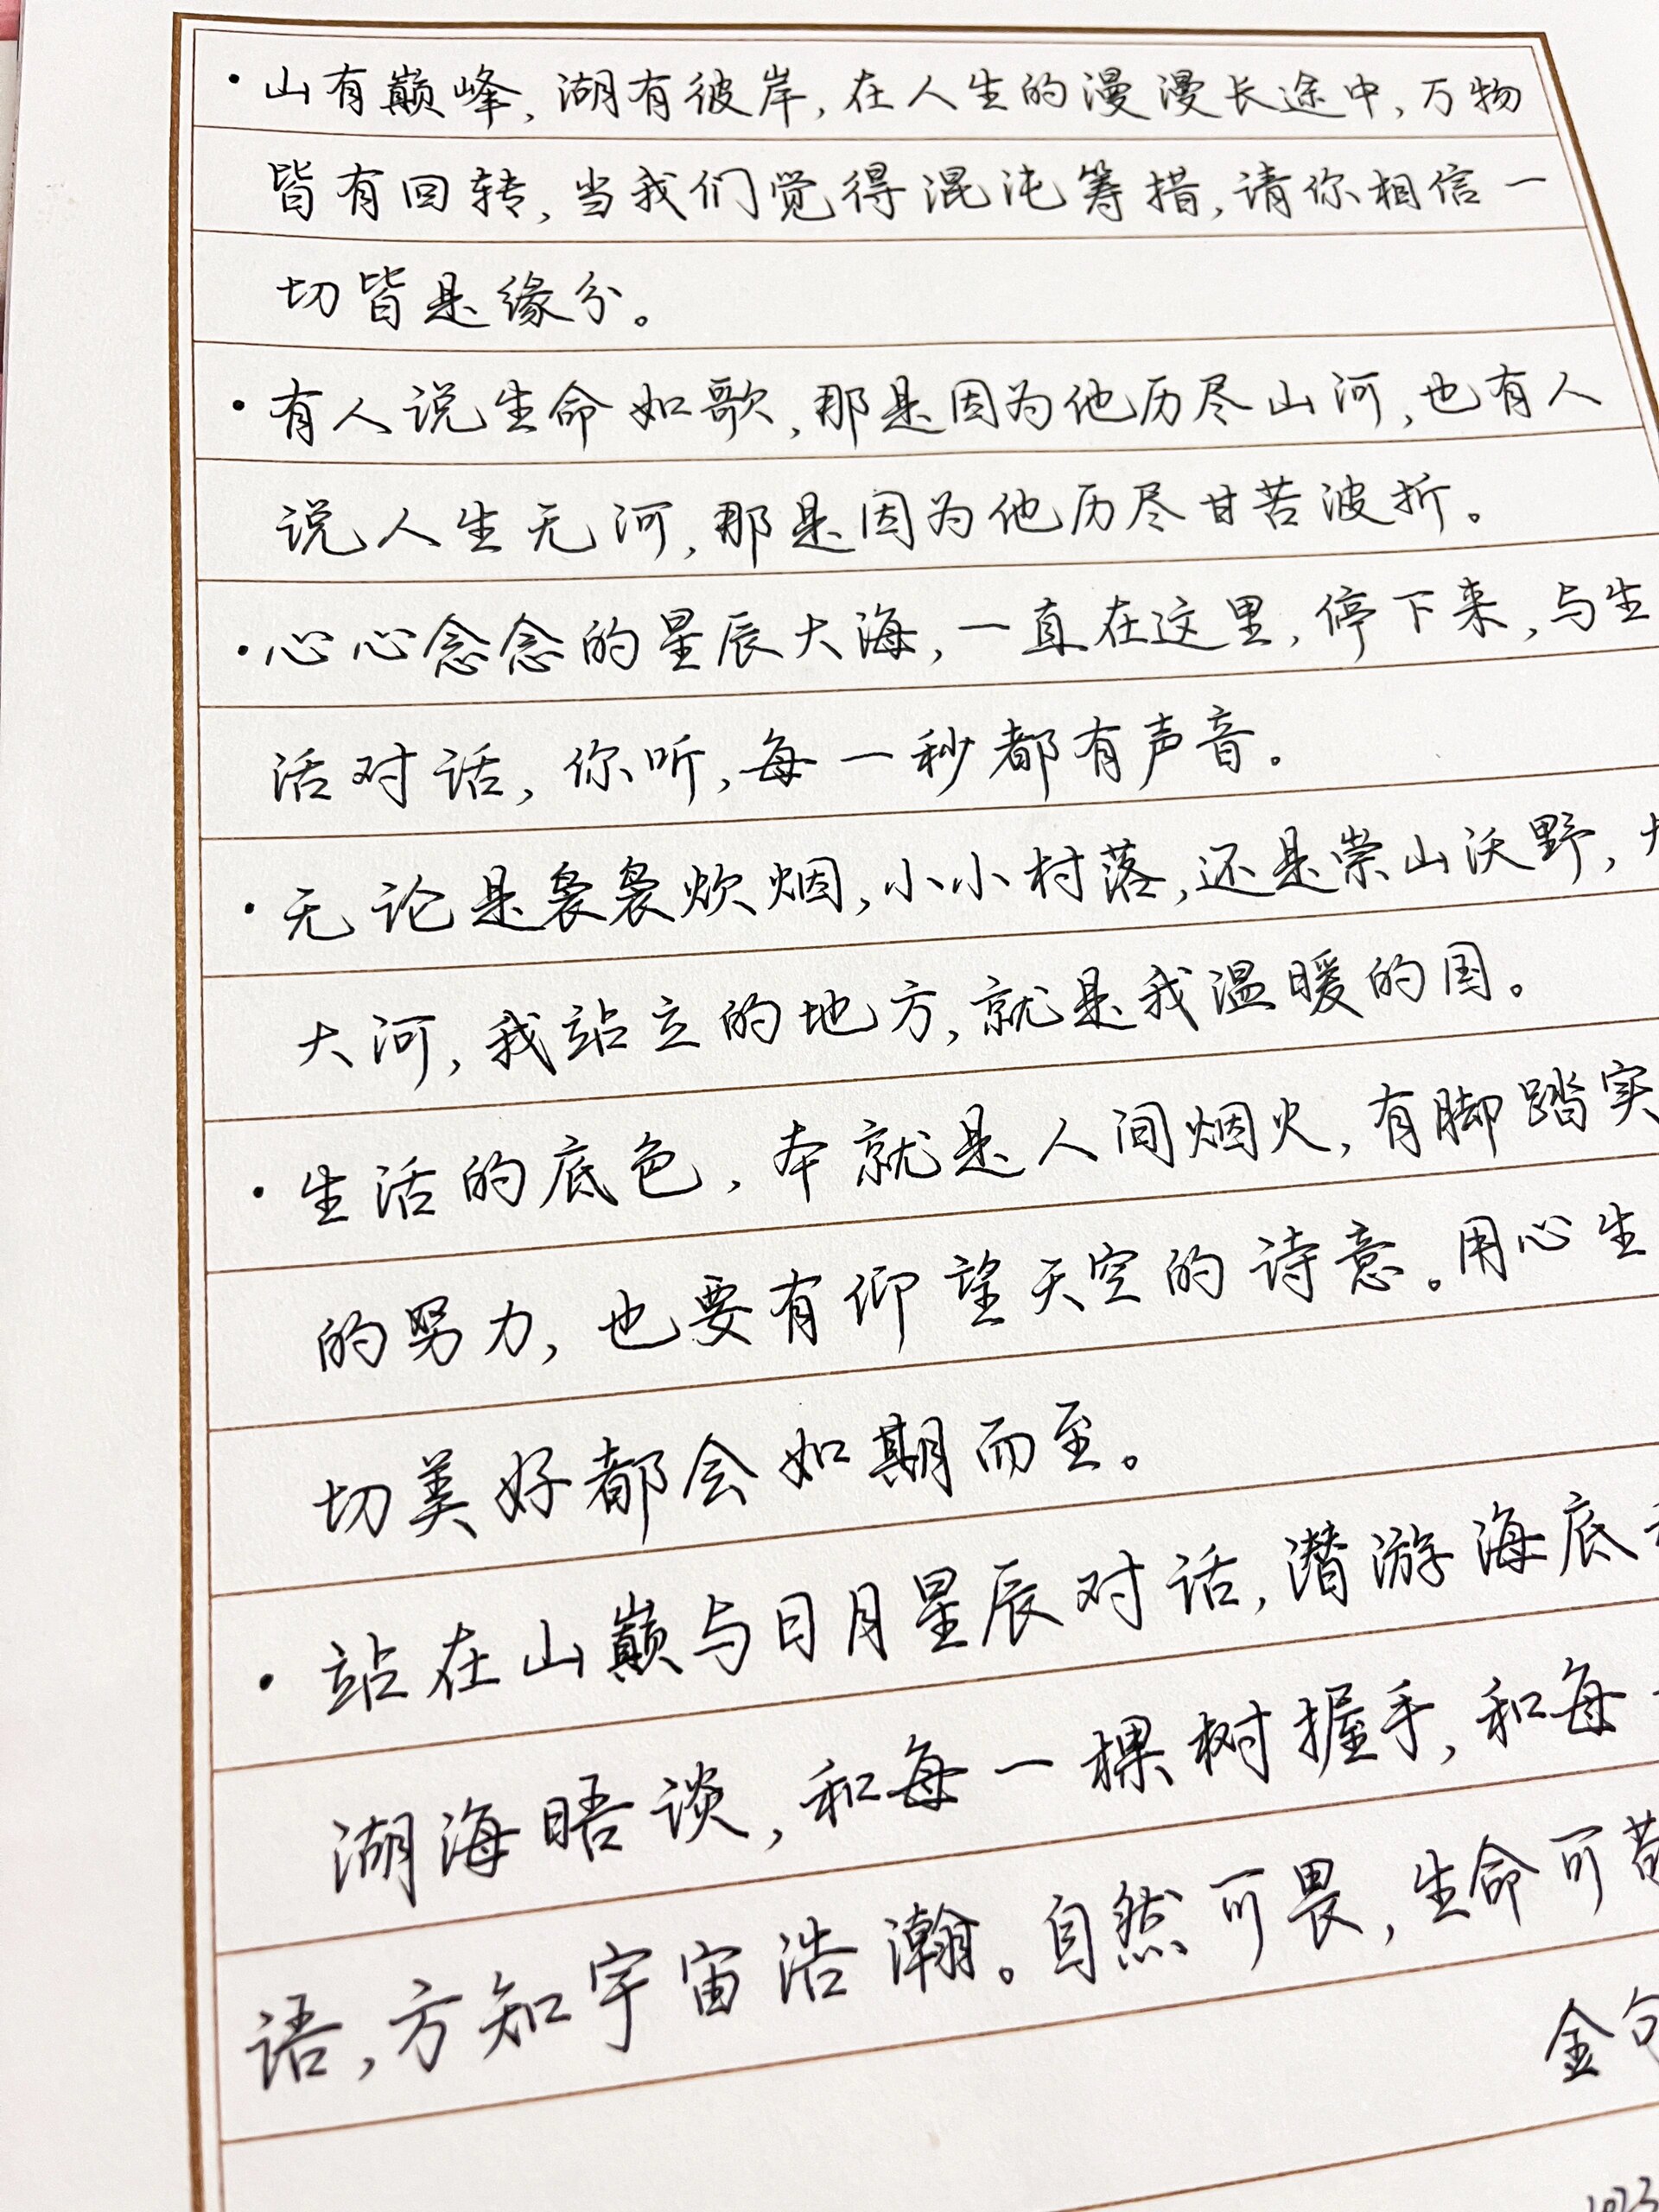 ·山有巅峰,湖有彼岸,在人生的漫漫长途中,万物
皆有回转,当我们觉得混沌筹措,请你相信一
切皆是缘分。
·有人说生命如歌,那是因为他历尽山河,也有人
说人生无河,那是因为他历尽甘苦波折。
·心心念念的星辰大海,一直在这里,停下来,与生
活对话,你听,每一秒都有声音。
·无论是袅袅炊烟,小小村落,还是崇山沃野,
大河,我站立的地方,就是我温暖的国。
·生活的底色,本就是人间烟火,有脚踏实
的努力,也要有仰望天空的诗意。用心生
切美好都会如期而至。
·站在山巅与日月星辰对话,潜游海底
湖海晤谈,和每一棵树握手,和每
语,方知宇宙浩瀚。自然可畏,生命可
金句